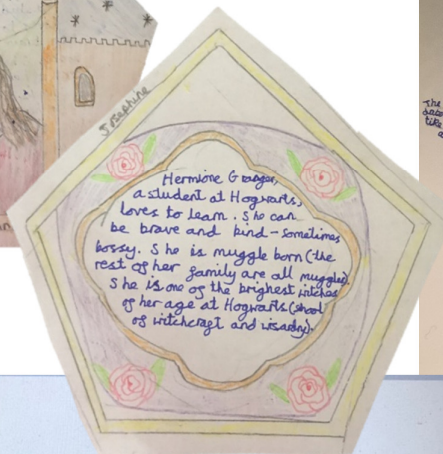 Josephine
Hermione Granger,
a student at Hogwarts,
loves to learn. She can
be brave and kind - sometimes
bossy. She is muggle born (the
rest of her family are all muggles).
She is one of the brighest witches
of her age at Hogwarts (shool
of witchcragt and wisardry).
The
like